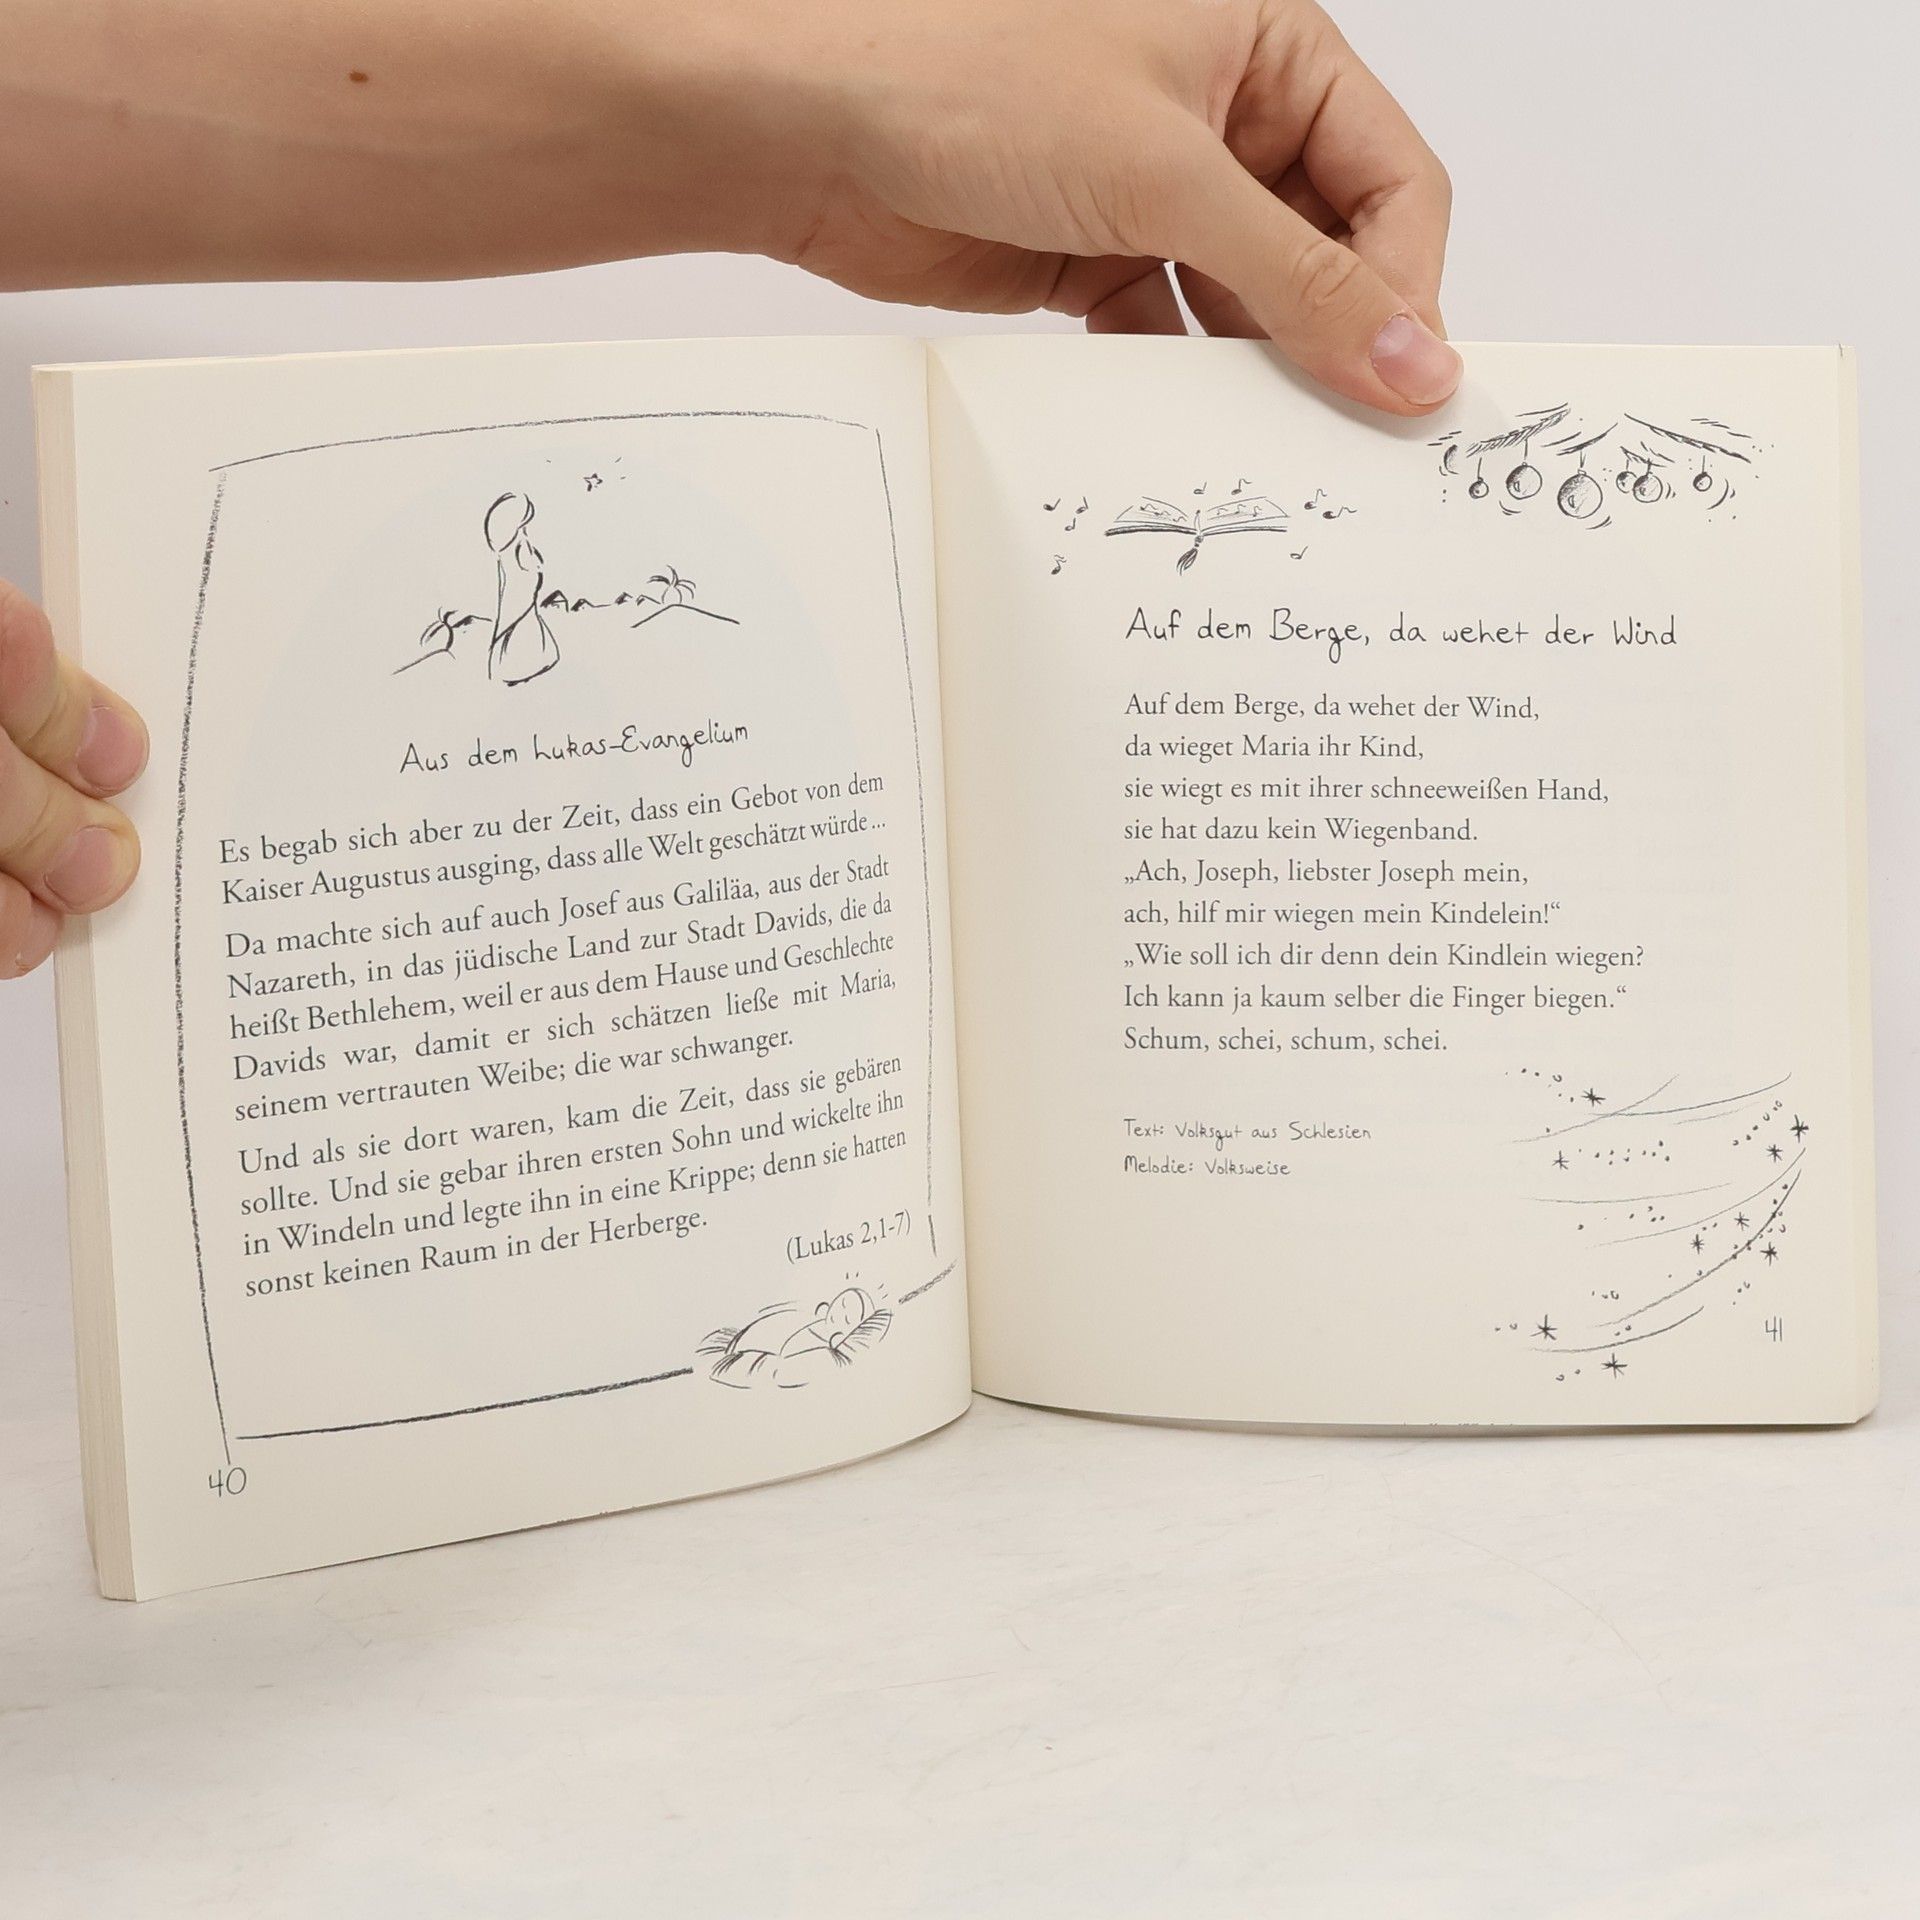 Aus dem Lukas-Evangelium
Es begab sich aber zu der Zeit, dass ein Gebot von dem
Kaiser Augustus ausging, dass alle Welt geschätzt würde ...
Da machte sich auf auch Josef aus Galiläa, aus der Stadt
Nazareth, in das jüdische Land zur Stadt Davids, die da
heißt Bethlehem, weil er aus dem Hause und Geschlechte
Davids war, damit er sich schätzen ließe mit Maria,
seinem vertrauten Weibe; die war schwanger.
Und als sie dort waren, kam die Zeit, dass sie gebären
sollte. Und sie gebar ihren ersten Sohn und wickelte ihn
in Windeln und legte ihn in eine Krippe; denn sie hatten
sonst keinen Raum in der Herberge.
(Lukas 2,1-7)
40
Auf dem Berge, da wehet der Wind
Auf dem Berge, da wehet der Wind,
da wieget Maria ihr Kind,
sie wiegt es mit ihrer schneeweißen Hand,
sie hat dazu kein Wiegenband.
„Ach, Joseph, liebster Joseph mein,
ach, hilf mir wiegen mein Kindelein!“
„Wie soll ich dir denn dein Kindlein wiegen?
Ich kann ja kaum selber die Finger biegen.“
Schum, schei, schum, schei.
Text: Volksgut aus Schlesien
Melodie: Volksweise
41